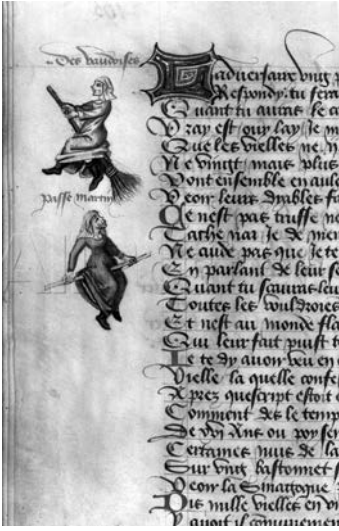 Des vaudoises
passe martin
Ladversaire vng
Respondy tu fera
Quant tu auras
Vray est ouy lay Je
Que les vielles ne
Ne vingt mais plus
Vont ensemble en
Veoir leurs dyables
Ce nest pas truffe
Sache nar Je de
Ne cuide pas que Je te
En parlant de leur
Quant tu scauras leu
Toutes les vouldroies
Et nest au monde
Qui leur fait puist
Je te dy auoir veu en
Vielle la quelle confe
Aprez quescript estoit
Comment des le temp
De Ans ou poy
Certaines nuis de la
Sur vng bastonnet
Veoir la Sinagogue
Dix mille vielles en
Y auoit il